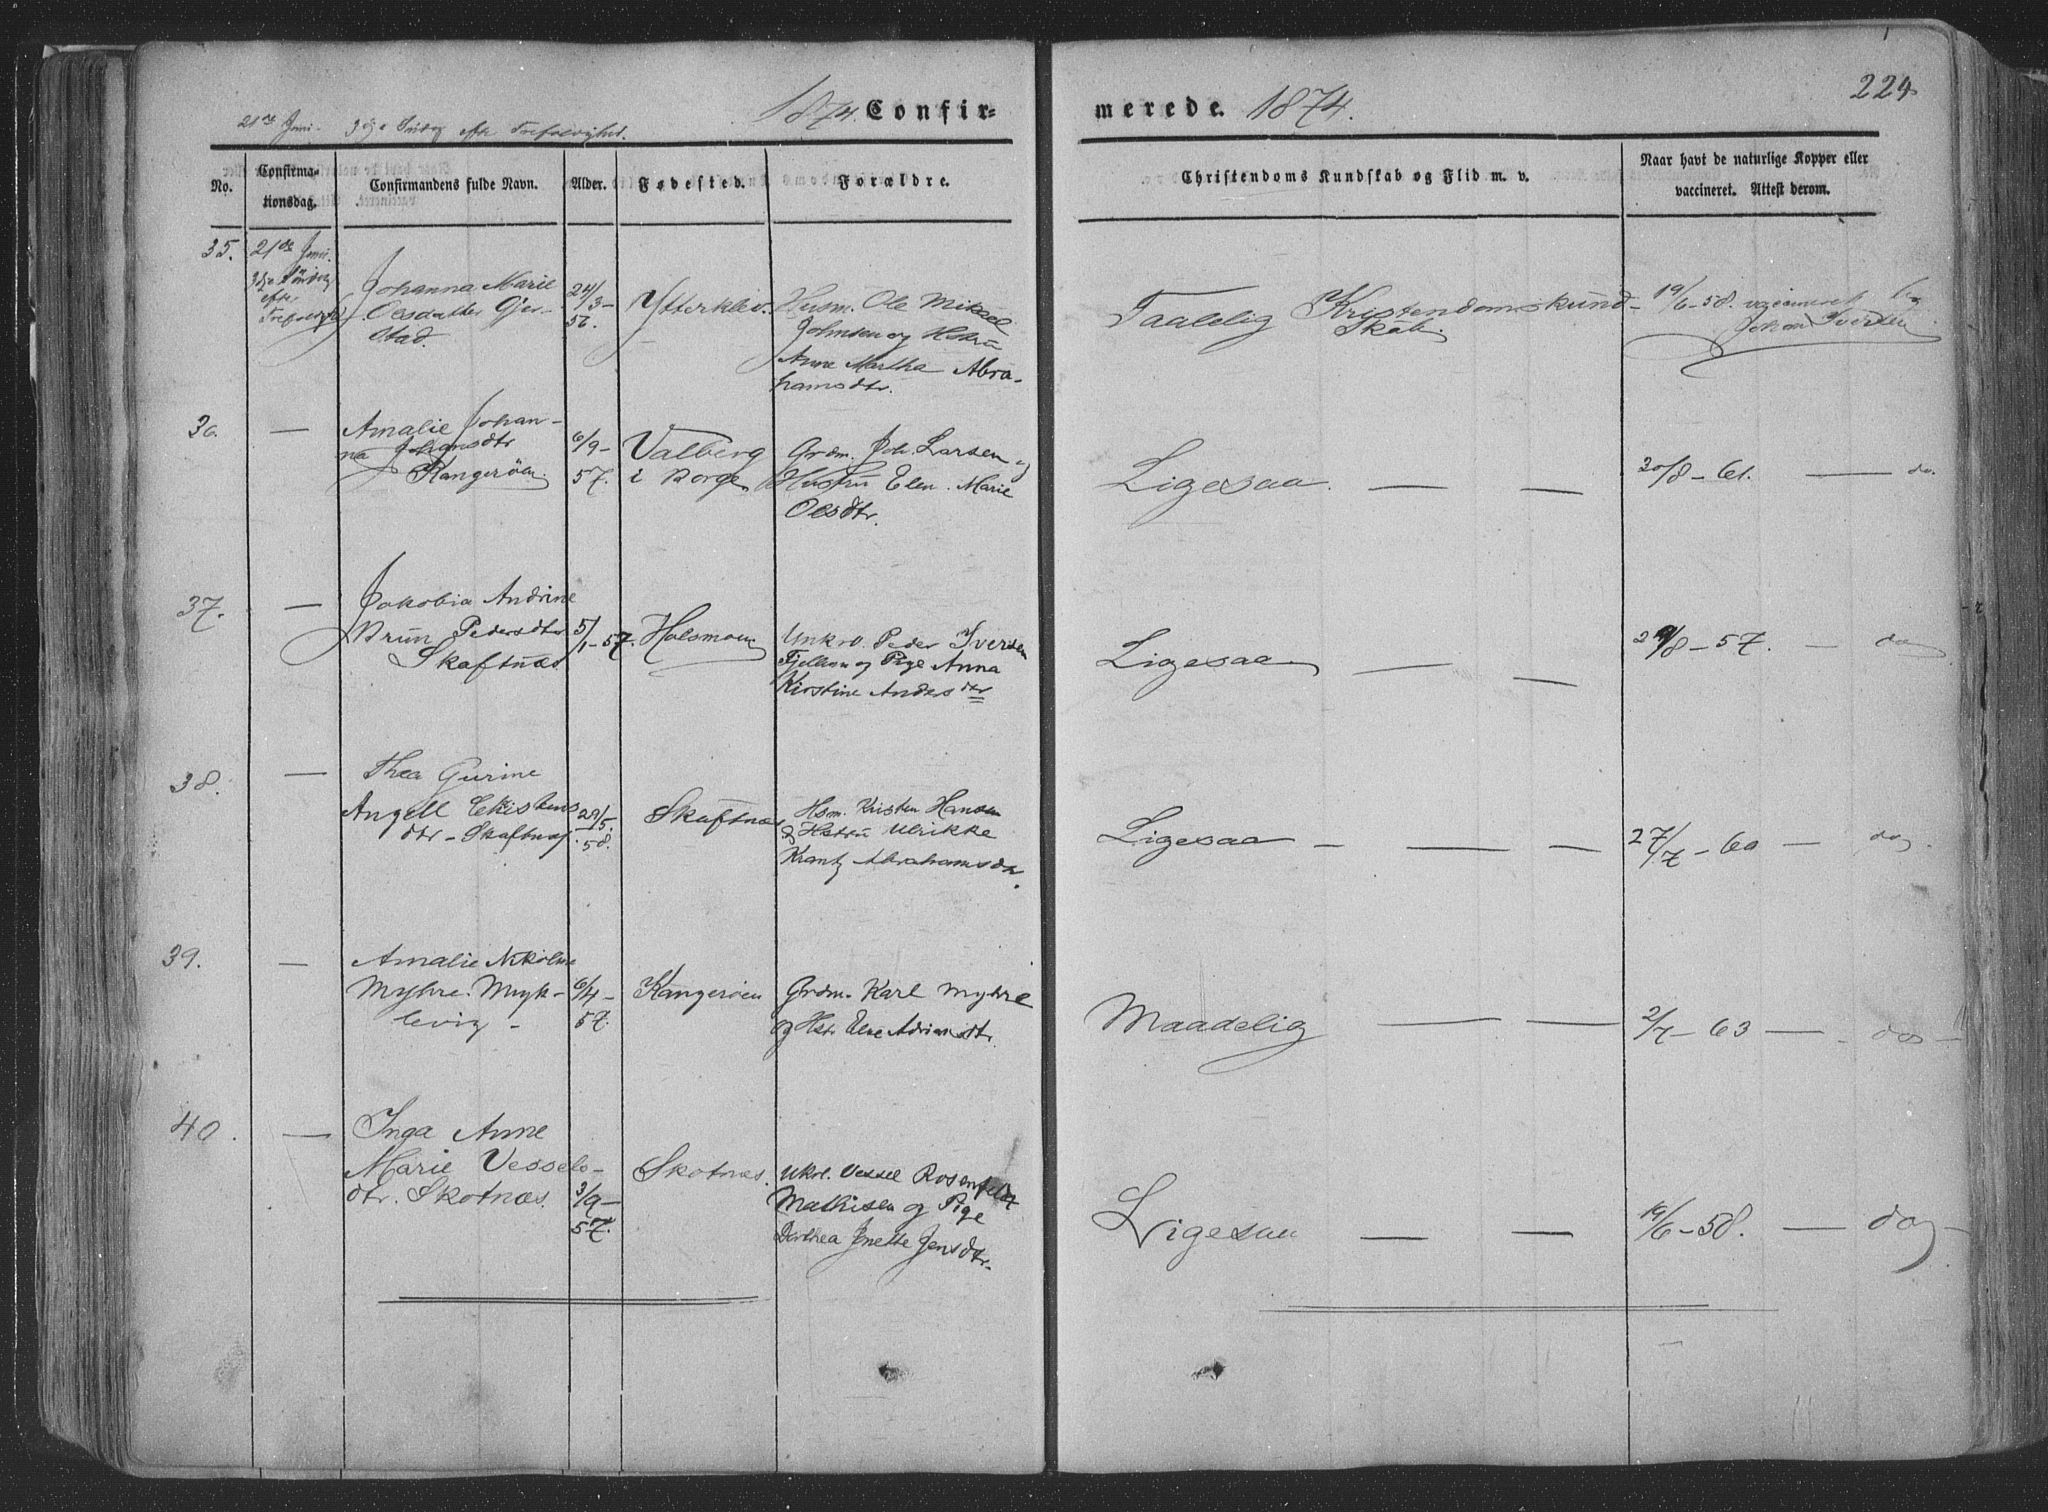 224
21de Juni. 3dje Søndag efter Trefoldighed.
1874. Confir-
merede. 1874.
No.
Confirma-
tionsdag.
Confirmandens fulde Navn.
Alder.
Fødested.
Forældre.
Christendoms Kundskab og Flid m. v.
Naar havt de naturlige Kopper eller
vaccineret. Attest derom.
35.
21de Juni.
3dje Søndag
efter
Johanna Marie
Olesdatter Gjer-
stad.
24/3-
Ytterkleiv.
Husm. Ole Mikael
Johnsen og Hstrü
Anne Martha Abra-
hamsdtr.
Taalelig Kristendomskund-
skab.
19/6-58. vaccineret
Johan Iversen
36.
—
Amalie Johan-
na Johansdtr
Kangerøen
6/9-
57.
Valberg
i Borge
Grdm. Joh. Larsen og
Hustrü Elen Marie
Olsdtr.
Ligesaa. — —
30/8-61. — do.
37.
—
Jakobia Andrine
Brün Pedersdtr
Skaftnæs
5/1-57.
Holsmoen
Unkr. Peder Iversen
Fjellom og Pige Anna
Kirstine Andersdtr
Ligesaa — —
29/8-57. — do
38.
—
Thea Gurine
Angell Kristens
dtr - Skaftnæs.
29/5.
58.
Skaftnæs
Hsm. Kristen Hansen
& Hstrü Ulrikke
Krantz Abrahamsdtr.
Ligesaa — — —
27/7-60 — do
39.
—
Amalie Nikoline
Myhre. Myk-
levig -
6/4-
57.
Kangerøen
Grdm. Karl Myhre
og Hstr. Else Adriansdtr.
Maadelig — —
2/7-63 — do -
40.
—
Inga Anne
Marie Vessels-
dtr. Skotnæs.
3/9-
57.
Skotnæs.
Ukr. Vessel Rosenfeldt
Mathisen og Pige
Dorthea Jnette Jensdtr.
Ligesaa — —
19/6-58. — do -